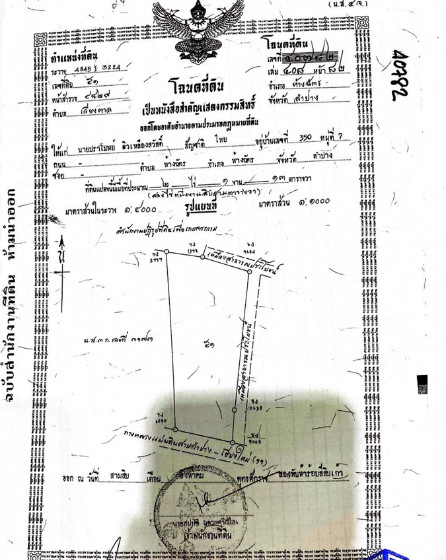 (น.ส.๔จ.)
ตำแหน่งที่ดิน
ระวาง 4845 I 3224
เลขที่ดิน ๕๑
หน้าสำรวจ
ตำบล
โฉนดที่ดิน
เลขที่ ๔๐๗๘๒
เล่ม ๔๐๘ หน้า ๘๒
อำเภอ ห้างฉัตร
จังหวัด ลำปาง
40782
โฉนดที่ดิน
เป็นหนังสือสำคัญแสดงกรรมสิทธิ์
ออกโดยอาศัยอำนาจตามประมวลกฎหมายที่ดิน
ให้แก่ สัญชาติ ไทย อยู่บ้านเลขที่ 350 หมู่ที่ 7
ถนน - ตำบล ห้างฉัตร อำเภอ ห้างฉัตร จังหวัด ลำปาง
ซอย -
ที่ดินแปลงนี้มีเนื้อที่ประมาณ ๒ ไร่ ๑ งาน ๑๓ ตารางวา
(สองไร่หนึ่งงานสิบสามตารางวา)
มาตราส่วนในระวาง ๑:๔๐๐๐ รูปแผนที่ มาตราส่วน ๑:๑๐๐๐
สำนักงานปฏิรูปที่ดินเพื่อเกษตรกรรม
เหมืองสาธารณประโยชน์
น
น.ส.๓ ก. เลขที่
๕๑
เหมืองสาธารณประโยชน์
ทางหลวงแผ่นดินสายลำปาง - เชียงใหม่ (๑๑)
ออก ณ วันที่ สามสิบ เดือน สิงหาคม พุทธศักราช สองพันห้าร้อยสี่สิบเก้า
เจ้าพนักงานที่ดิน
ฉบับสำนักงานที่ดิน ห้ามนำออก